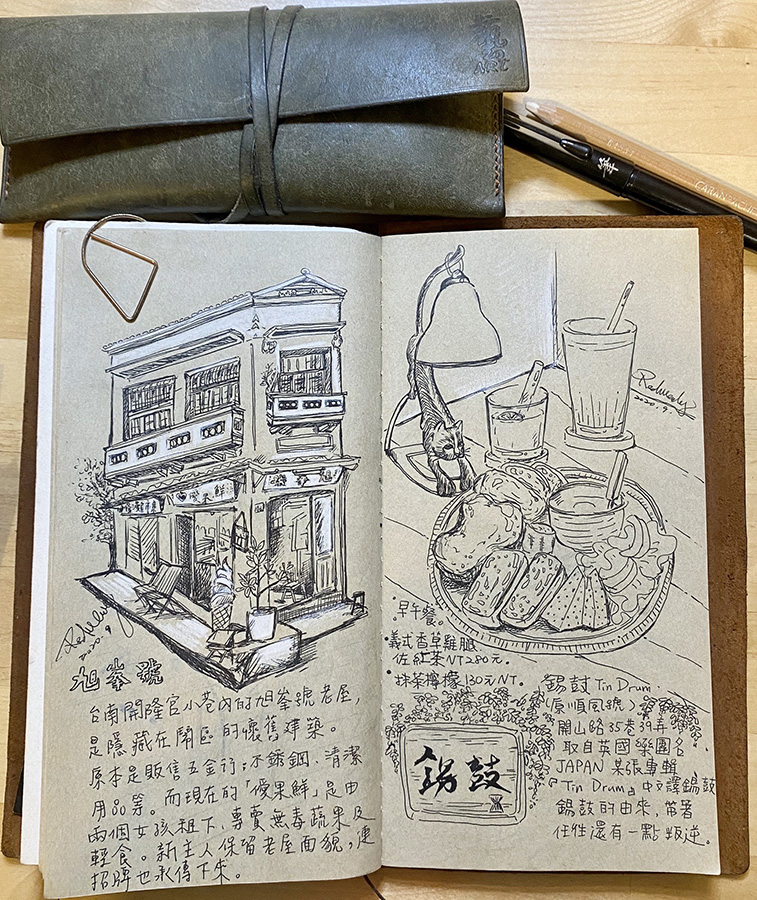 ART
CARAN D'ACHE
優果鮮
2020.9
旭峯號
台南開隆宮小巷內的旭峯號老屋,
是隱藏在鬧區的懷舊建築。
原本是販售五金行;不銹鋼、清潔
用品等。而現在的「優果鮮」是由
兩個女孩租下,專賣無毒蔬果及
輕食。新主人保留老屋面貌,連
招牌也承傳下來。
2020.9.
•早午餐。
•義式香草雞腿
佐紅茶NT280元.
•抹茶檸檬130元NT.
錫鼓
錫鼓 Tin Drum.
(原順風號)
開山路35巷39弄
取自英國樂團名
JAPAN 某張專輯
『Tin Drum』中文譯錫鼓
錫鼓的由來,帶著
任性還有一點叛逆。